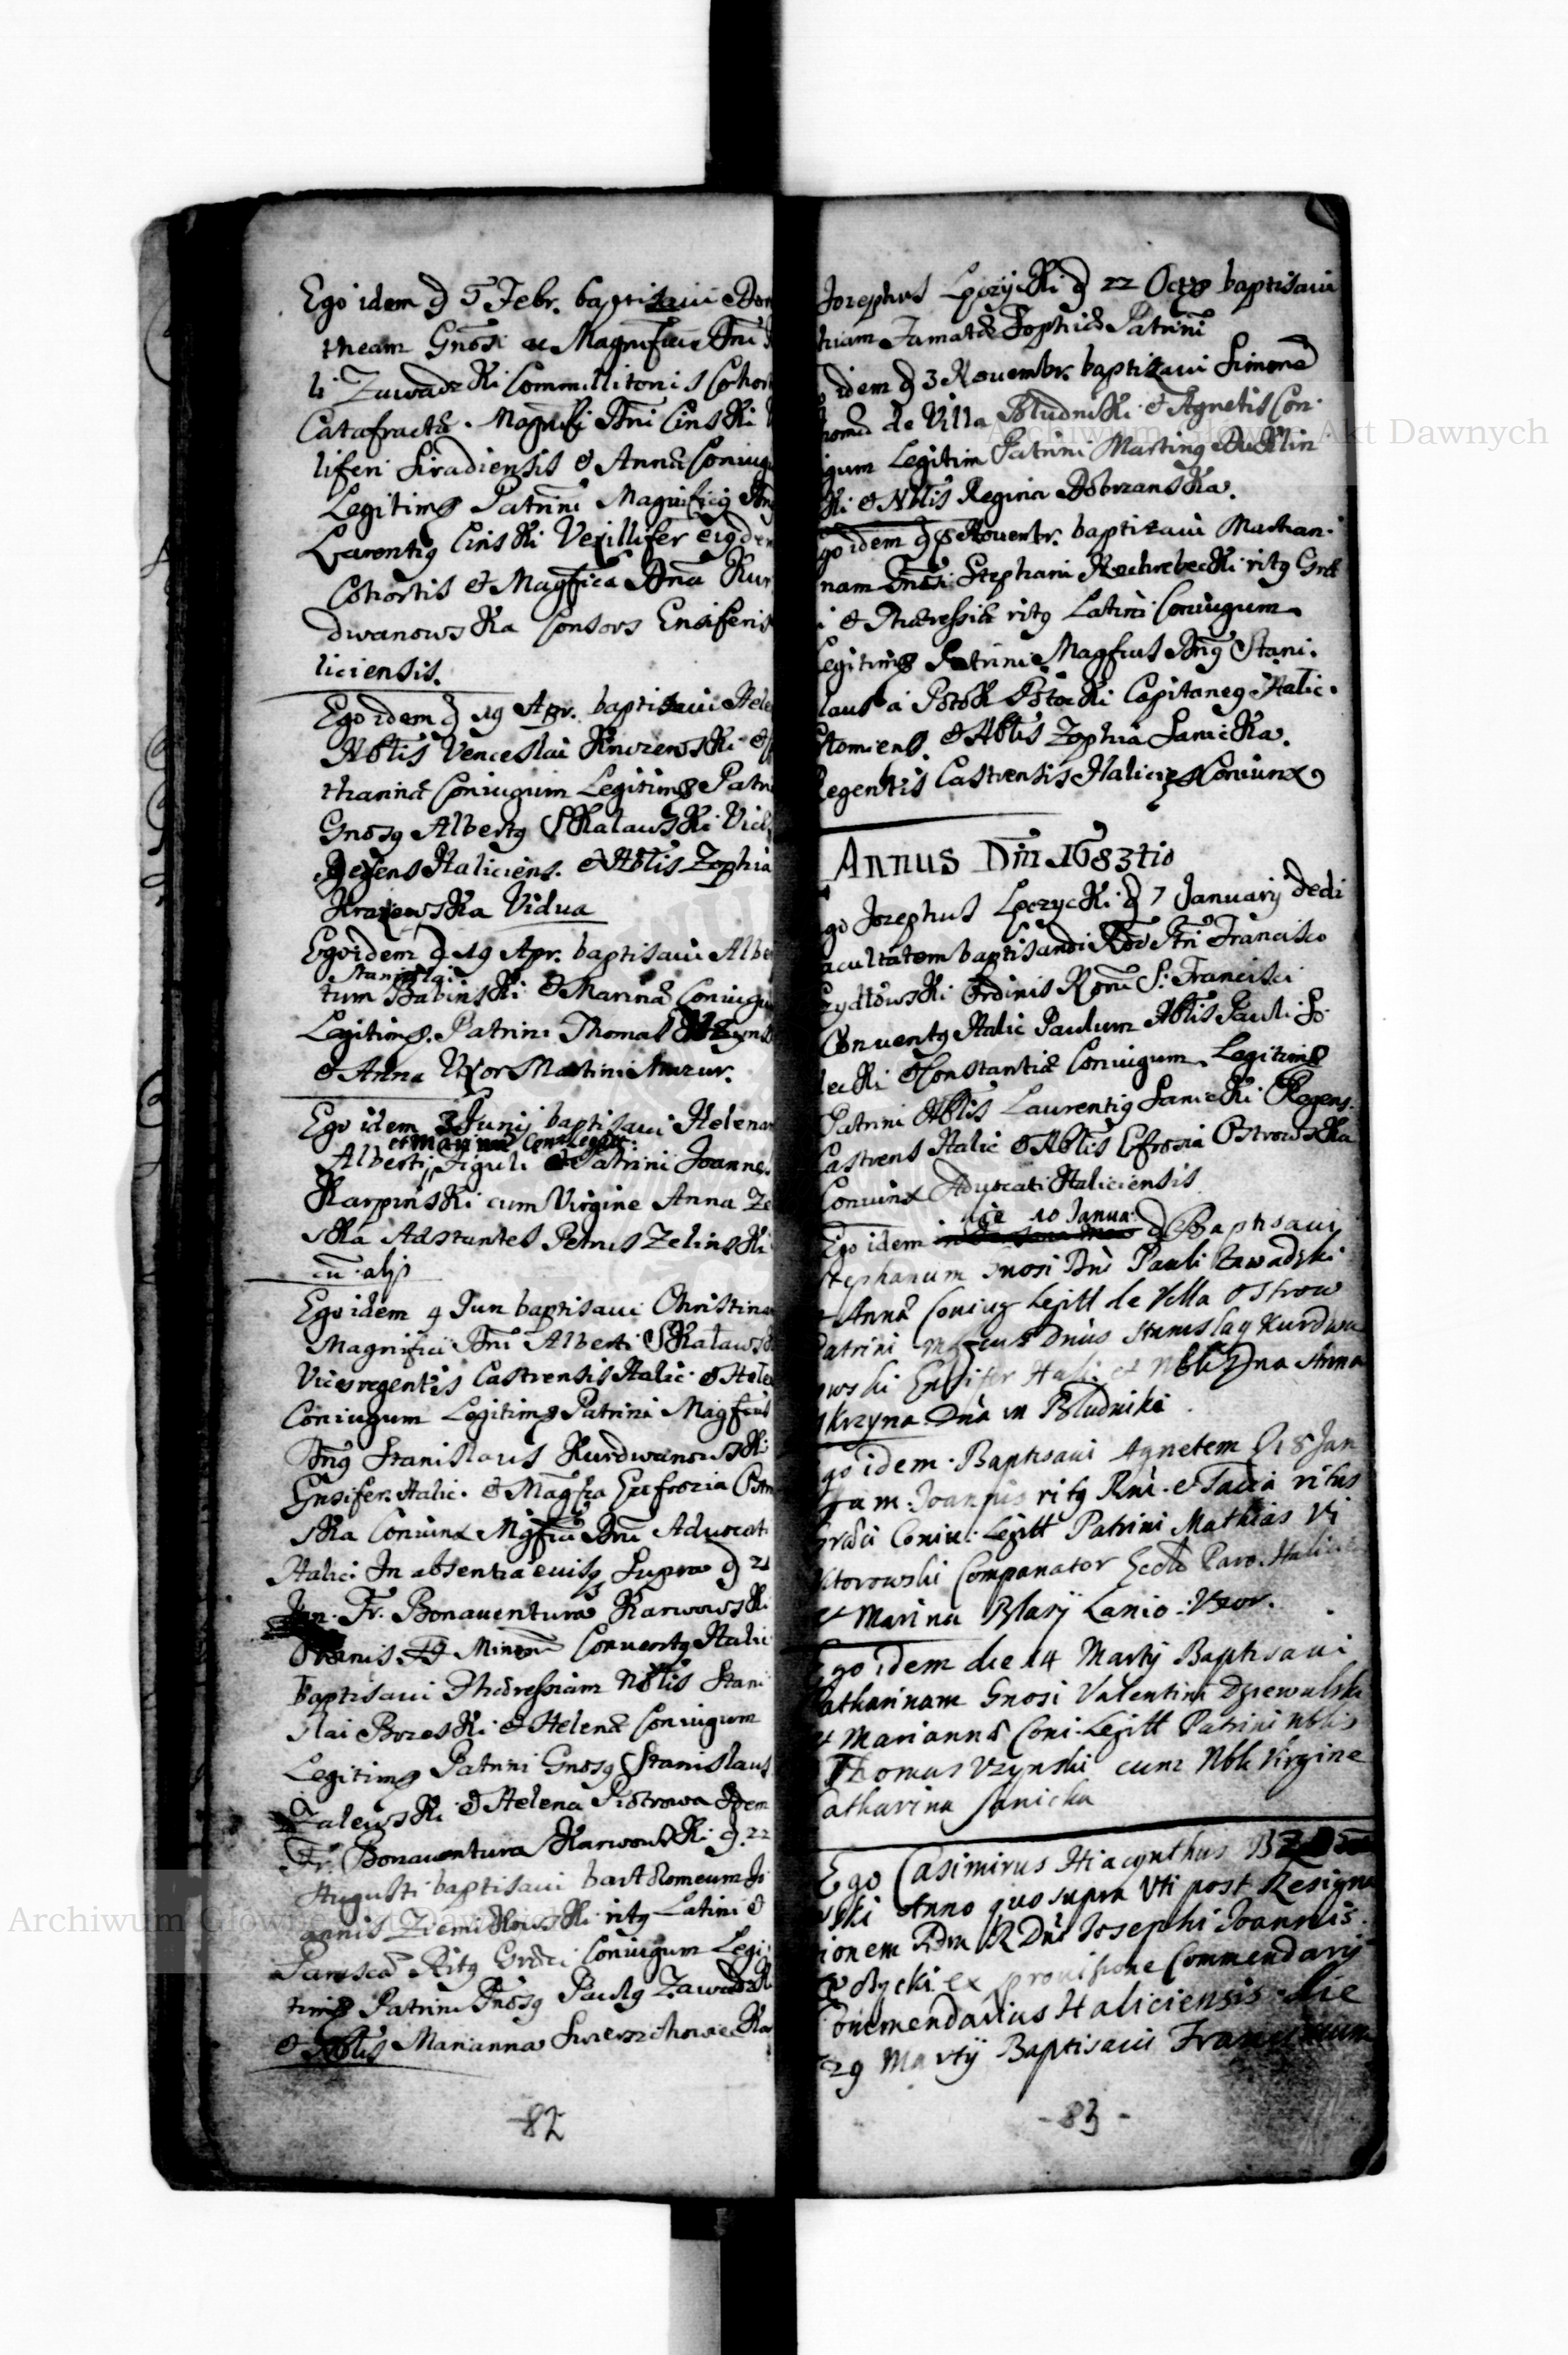 Ego idem d 5 Febr. baptisaui Dor
theam Gnosi ac Magnifici Dni
li Zawadzki Commilitonis Cohor
Catafractæ. Magnifi Dni Cinski
liferi Siradiensis & Annæ Coniug
Legitimor Patrini Magnificq Dnq
Laurentiq Cinski Vexillifer eiqdem
Cohortis & Magfica Dna Kur
dwanowska Consors Ensiferis
liciensis.
Ego idem d 19 Apr. baptisaui Hele
Nblis Venceslai & 
tharinæ Coniugum Legitimor Patri
Gnosq Albertq Skalawski Vice
Regens Haliciens. & Nblis Zophia
Krajewska Vidua
Ego idem d 19 Apr. baptisaui Albe
Stanislai
tum Babinski & Marinæ Coniugu
Legitimor. Patrini Thomas
& Anna Uxor Martini Mazur.
Ego idem 3 Junij baptisaui Helenam
et Marinæ Con: Legitt:
Alberti Figuli & Patrini Joannes
Karpinski cum Virgine Anna Ze
ska Adstantes Petrus Zelinski
cu alijs
Ego idem 9 Jun baptisaui Christina
Magnifici Dni Alberti Skalawski
Vicesregentis Castrensis Halic. & Hele
Coniugum Legitimor Patrini Magficus
Dnq Stanislaus Kurdwanowski
Ensifer. Halic. & Magfca Eufrozia Ostro
ska Coniunx Mgfici Dni Aduocati
Halic. In absentia cuiusq Supra d 21
Jun. Fr. Bonauentura Karwowski
Ordinis Minom Conuentq Halic
baptisaui Theressiam Nblis Stani
slai Brzeski & Helenæ Coniugum
Legitimor Patrini Gnosq Stanislaus
Zalewski & Helena Piotrowa Idem
Fr. Bonauentura Karwowski d. 22
Augusti baptisaui bartolomeum Jo
annis Ziemilkowski ritq Latini &
Parascæ Ritq Græci Coniugum Legi
timor Patrini Gnosq Paulq Zawadzki
& Nblis Marianna
82
Jozephus Łęczycki d 22 Octo baptisaui
riam Famatæ Sophiæ Patrini
idem d 3 Nouembr. baptizaui Simone
homæ de Villa Bludniki & Agnetis Con
iugum Legitim Patrini Martinq
ki & Nblis Regina Dobrzanska.
go idem d 8 Nouembr. baptizaui Marian
nam Gnosi Stephani ritq Græ
i & Theressiæ ritq Latini Coniugum
Legitimor Patrini Magficus Dnq Stani
laus a Potok Potocki Capitaneq Halic.
Kolomiens. & Nblis Zophia Sanicka.
Regentis Castrensis Halicies Coniunx
Annus Dni 1683tio
go Jozephus Łęczycki d 7 January dedi
acultatem baptisandi Rdo Ptri Francisco
Szydłowski Ordinis Rom S: Francisci
Conuentq Halic Paulum Nblis Pauli So
lecki & Constantiæ Coniugum Legitimor
Patrini Nblis Laurentiq Sanicki Regens
Castrens Halic & Nblis Efrosia Ostrowska
Coniunx Aduocati Haliciensis
die 10 Janua:
Ego idem Baptisaui
Stephanum Gnosi Dni Pauli Zawadzki
& Annæ Coniug Legitt de Villa Ostrow
Patrini Mgficus Dnus Stanislaq Kurdwa
owski Ensifer Hali. et Nblis Dna Anna
Skrzyna Dna in Bludniki.
go idem Baptisaui Agnetem D 18 Jan
iam: Joannis ritq Rni. & Tacia ritus
Græci Coniu: Legitt Patrini Mathias Vi
ktorowski Companator Eccle Paro. Halicien
& Marina Blasÿ Lanio: Vxor.
Ego idem die 14 Martij Baptisaui
Catharinam Gnosi Valentini Dziewulski
& Mariannæ Coni: Legitt Patrini Nblis
Thomas Vzynski cum Nbli Virgine
Catharina Sanicka
Ego Casimirus Hiacynthus
ski Anno quo supra Vti post Resigna
ionem Adm R Dni Josephi Joannis
Łęczycki ex prouisione Commendarij
Commendarius Haliciensis die
29 Martÿ Baptisaui
- 83 -
Archiwum Główne Akt Dawnych
Archiwum Główne Akt Dawnych